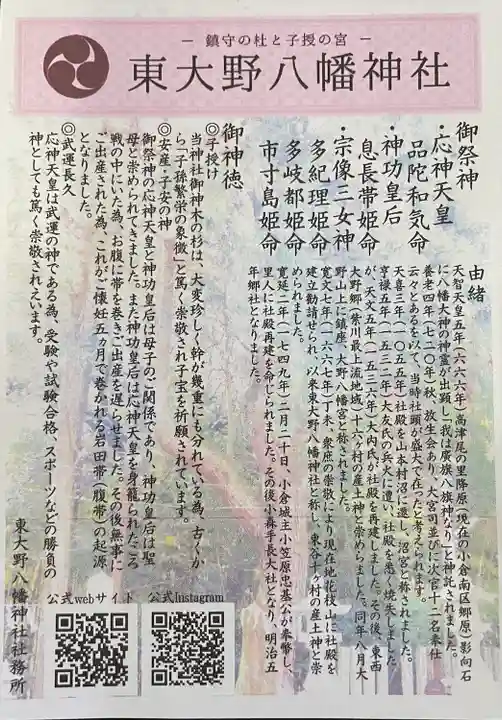 － 鎮守の杜と子授の宮 －
東大野八幡神社
御祭神
・応神天皇
品陀和気命
・神功皇后
息長帯姫命
・宗像三女神
多紀理姫命
多岐都姫命
市寸島姫命
由緒
天智天皇五年(六六六年)高津尾の里降原(現在の小倉南区郷原)影向石
に八幡大神の神霊が出顕し「我は廣族八旗神なり」と神託されました。
養老四年(七二〇年)秋、放生会あり、大宮司並びに次官十二名奉仕
云々とあるを以て、当時社頭が盛大で在ったと考えられます。
天喜三年(一〇五五年)社殿を山本村沼に遷し、沼宮と称されました。
亨禄五年(一五三二年)大友氏の兵火に遭い、社殿を悉く焼失しました
が、天文五年(一五三六年)大内氏が社殿を再建しました。その後、東西
大野郷(紫川最上流地域)十六ヶ村の産土神と崇めました。同年八月大
野山上に鎮座、大野八幡宮と称されました。
寛文七年(一六六七年)丁未、衆庶の崇敬により、現在地花枝山に社殿を
建立勧請せられ、以来東大野八幡神社と称し、東谷十ヶ村の産土神と崇
められました。
寛延二年(一七四九年)二月二十日、小倉城主小笠原忠基公が奉幣し、
里人に社殿再建を命じられました。その後小森手長大社となり、明治五
年郷社となりました。
御神徳
◎子授け
当神社御神木の杉は、大変珍しく幹が幾重にも分れている為、古くか
ら「子孫繁栄の象徴」と篤く崇敬され子宝を祈願されています。
◎安産・子安の神
御祭神の応神天皇と神功皇后は母子のご関係であり、神功皇后は聖
母と崇められてきました。また神功皇后は応神天皇を身籠られたころ
戦の中にいた為、お腹に帯を巻きご出産を遅らせました。その後無事に
ご出産された為、これがご懐妊五ヵ月で巻かれる岩田帯(腹帯)の起源
となりました。
◎武運長久
応神天皇は武運の神である為、受験や試験合格、スポーツなどの勝負の
神としても篤く崇敬されえいます。
公式webサイト
公式Instagram
東大野八幡神社社務所